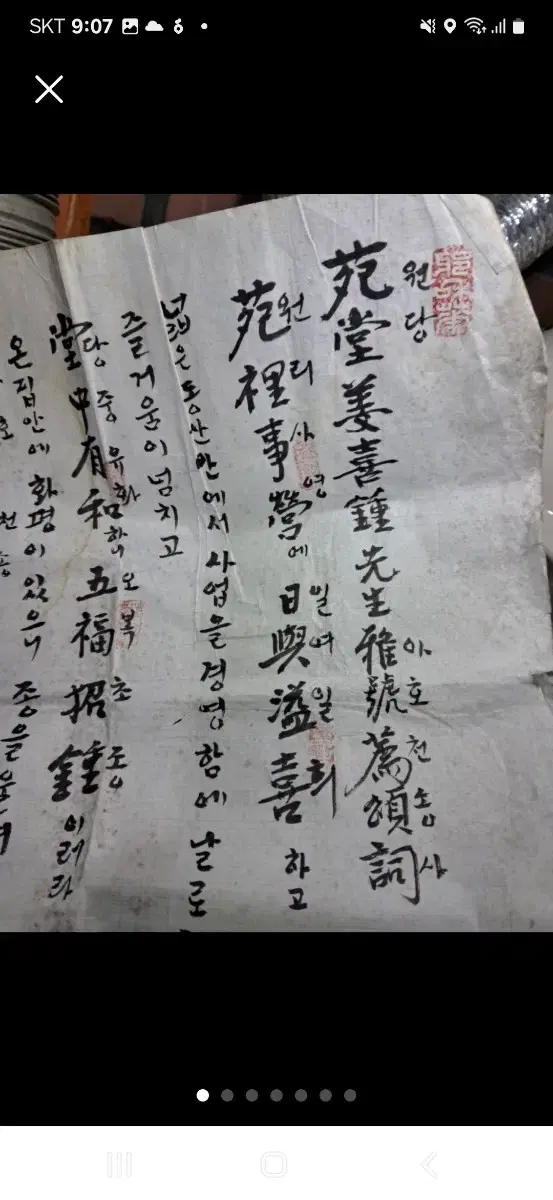 SKT 9:07
원당 아호천송사
苑堂姜喜鍾先生雅號薦頌詞
원리사영 일여일희
苑裡事營에 日與溢喜하고
넓은 동산 안에서 사업을 경영함에 날로
즐거움이 넘치고
당중유화하니 오복초종
堂中有和 五福招鍾이러라
온 집안에 화평이 있으니 종을